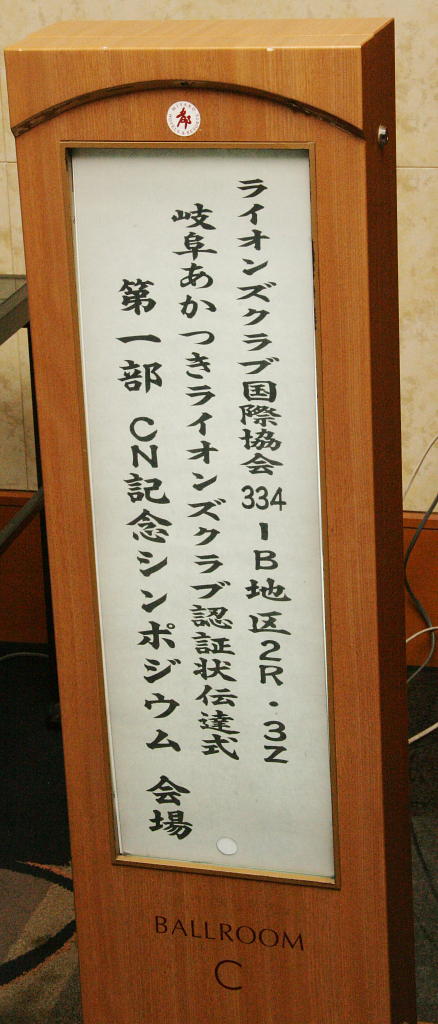 ライオンズクラブ国際協会334-B地区2R・3Z
岐阜あかつきライオンズクラブ認証状伝達式
第一部 CN記念シンポジウム 会場
BALLROOM
C